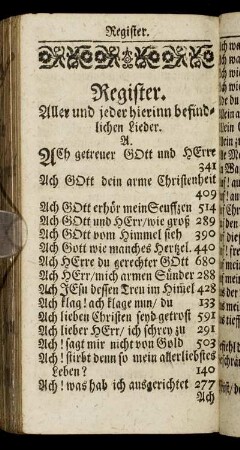 Register.
Register.
Aller und jeder hierinn befind-
lichen Lieder.
A.
ACh getreuer GOtt und HErr
341
Ach GOtt dein arme Christenheit
409
Ach GOtt erhör mein Seuffzen 514
Ach GOtt und HErr/wie groß 289
Ach GOtt vom Himmel sieh 390
Ach Gott wie manches Hertzel. 440
Ach HErre du gerechter GOtt 680
Ach HErr/mich armen Sünder 288
Ach JEsu dessen Treu im Himel 428
Ach klag! ach klage nun/ du 133
Ach lieben Christen seyd getrost 591
Ach lieber HErr/ ich schrey zu 291
Ach! sagt mir nicht von Gold 503
Ach! stirbt denn so mein allerliebstes
Leben? 140
Ach! was hab ich ausgerichtet 277
Ach